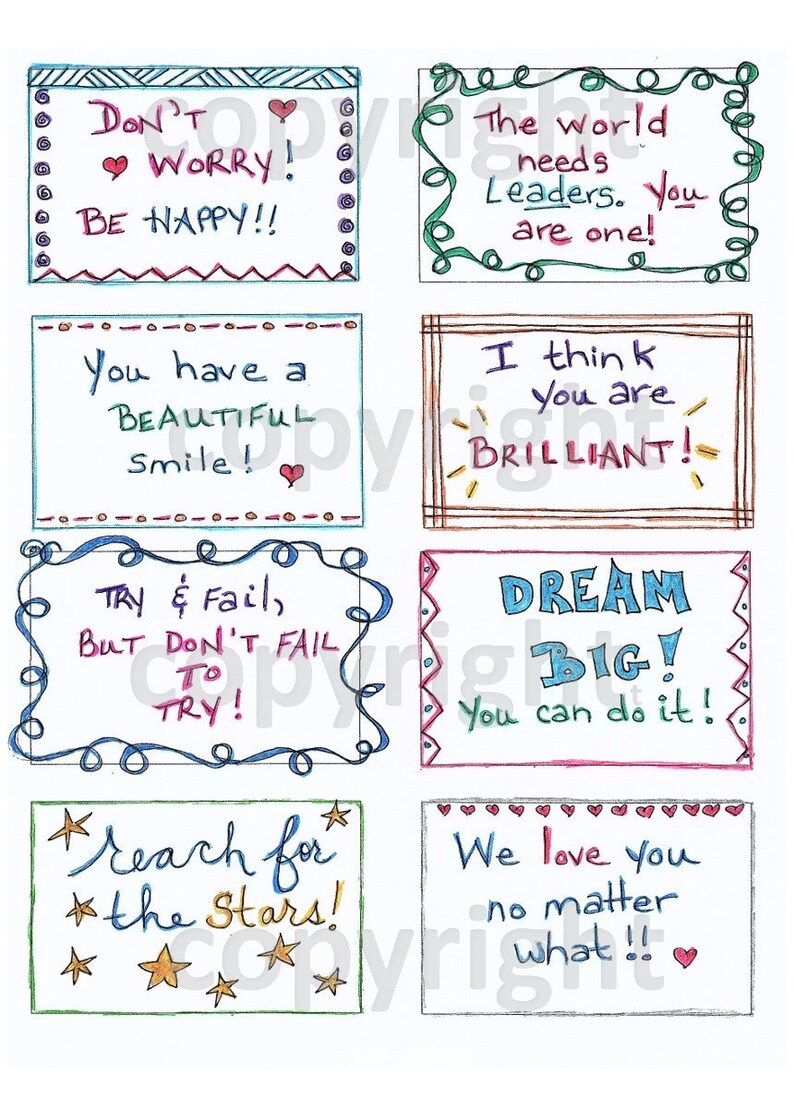 DON'T
WORRY!
BE HAPPY!!
The world
needs
Leaders. You
are one!
You have a
BEAUTIFUL
smile!
I think
you are
BRILLIANT!
TRY & Fail,
BUT DON'T FAIL
TO
TRY!
DREAM
BIG!
You can do it!
reach for
the Stars!
We love you
no matter
what!!
copyright
copyright
copyright
copyright
t